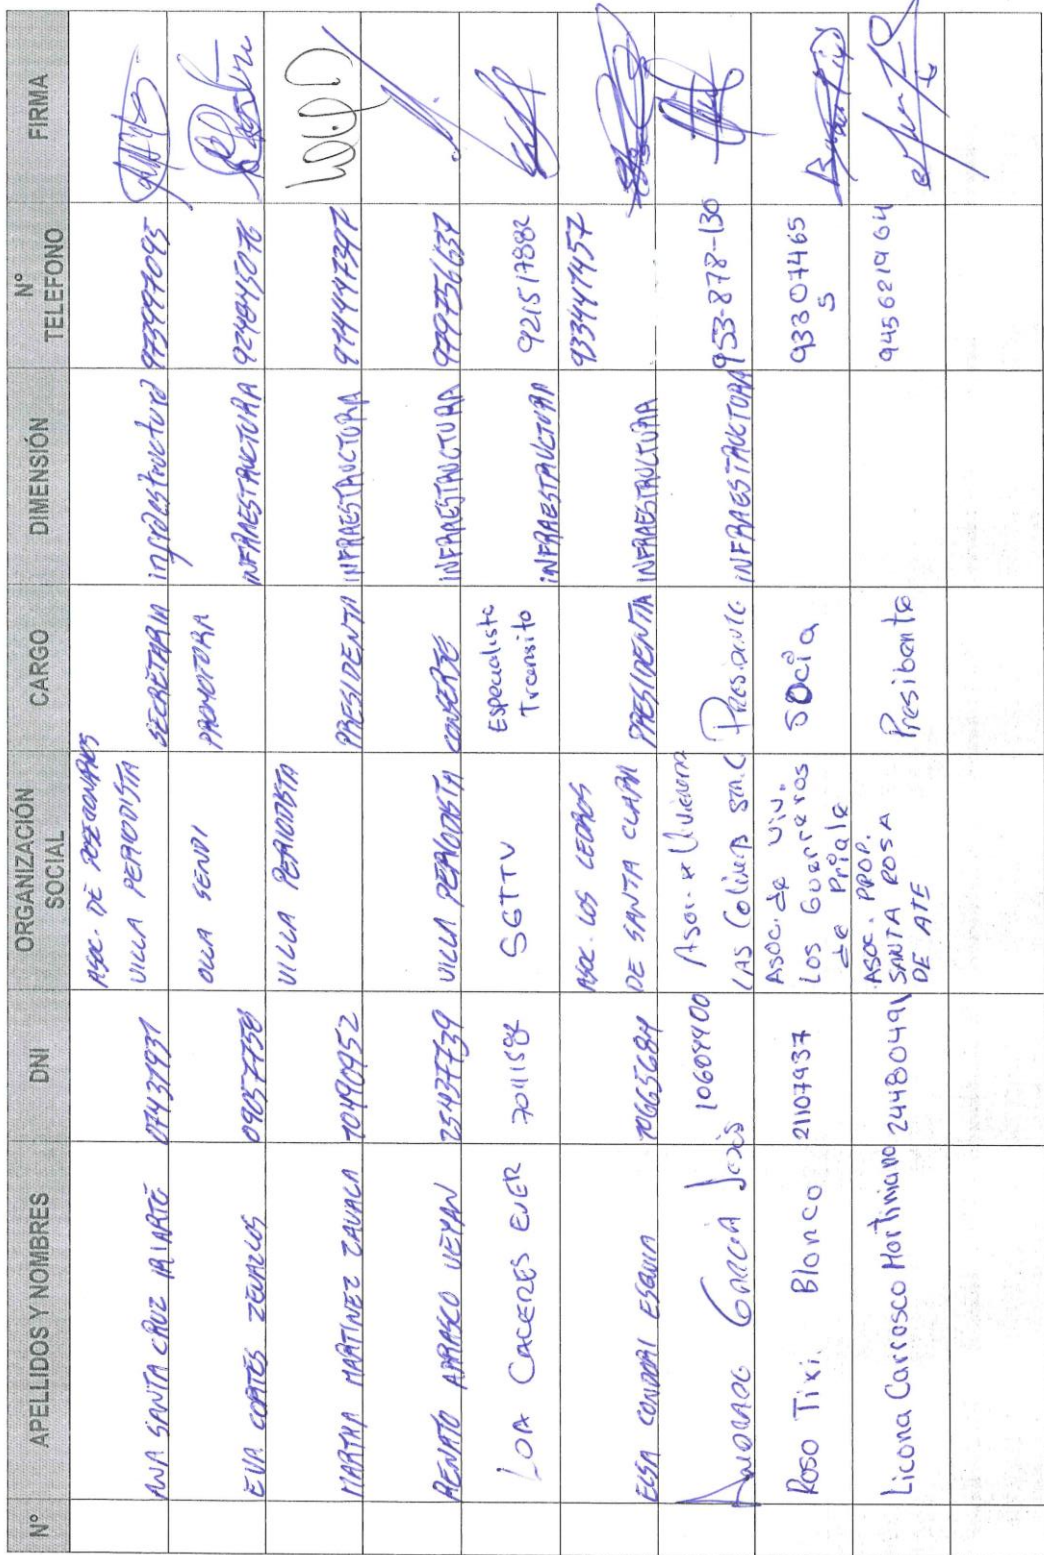 N° APELLIDOS Y NOMBRES DNI ORGANIZACIÓN SOCIAL CARGO DIMENSIÓN N° TELEFONO FIRMA
ASOC. DE POSECIONARIOS
ANA SANTA CRUZ IRIARTE 07437931 VILLA PERIODISTA SECRETARIA infraestructura 973997095
EVA CORTÉS ZEVALLOS 09057758 OLLA SENDI PROMOTORA INFRAESTRUCTURA 924845076
MARTHA MARTINEZ ZAVALA 10490952 VILLA PERIODISTA PRESIDENTA INFRAESTRUCTURA 914447397
RENATO ARRASCO 25437739 VILLA PERIODISTA INFRAESTRUCTURA 979756637
LOA CACERES EJER 70111584 SGTTV Especialista
Transito INFRAESTRUCTURA 921517882
ASOC. LOS CEDROS 933447457
ELSA CONDORI ESQUIA 10665684 DE SANTA CLARA PRESIDENTA INFRAESTRUCTURA
ANDRADE GARCIA Jesús 10609400 Asoc. Vivienda
LAS Colinas Presidente INFRAESTRUCTURA 953-878-130
Roso Tixi Blanco 21107937 Asoc. de Viv.
Los Guerreros
de Priale SOCia 93307465
5
Licona Carrosco Martiniano 24480491 ASOC. PROP.
SANTA ROSA
DE ATE Presibente 945621964